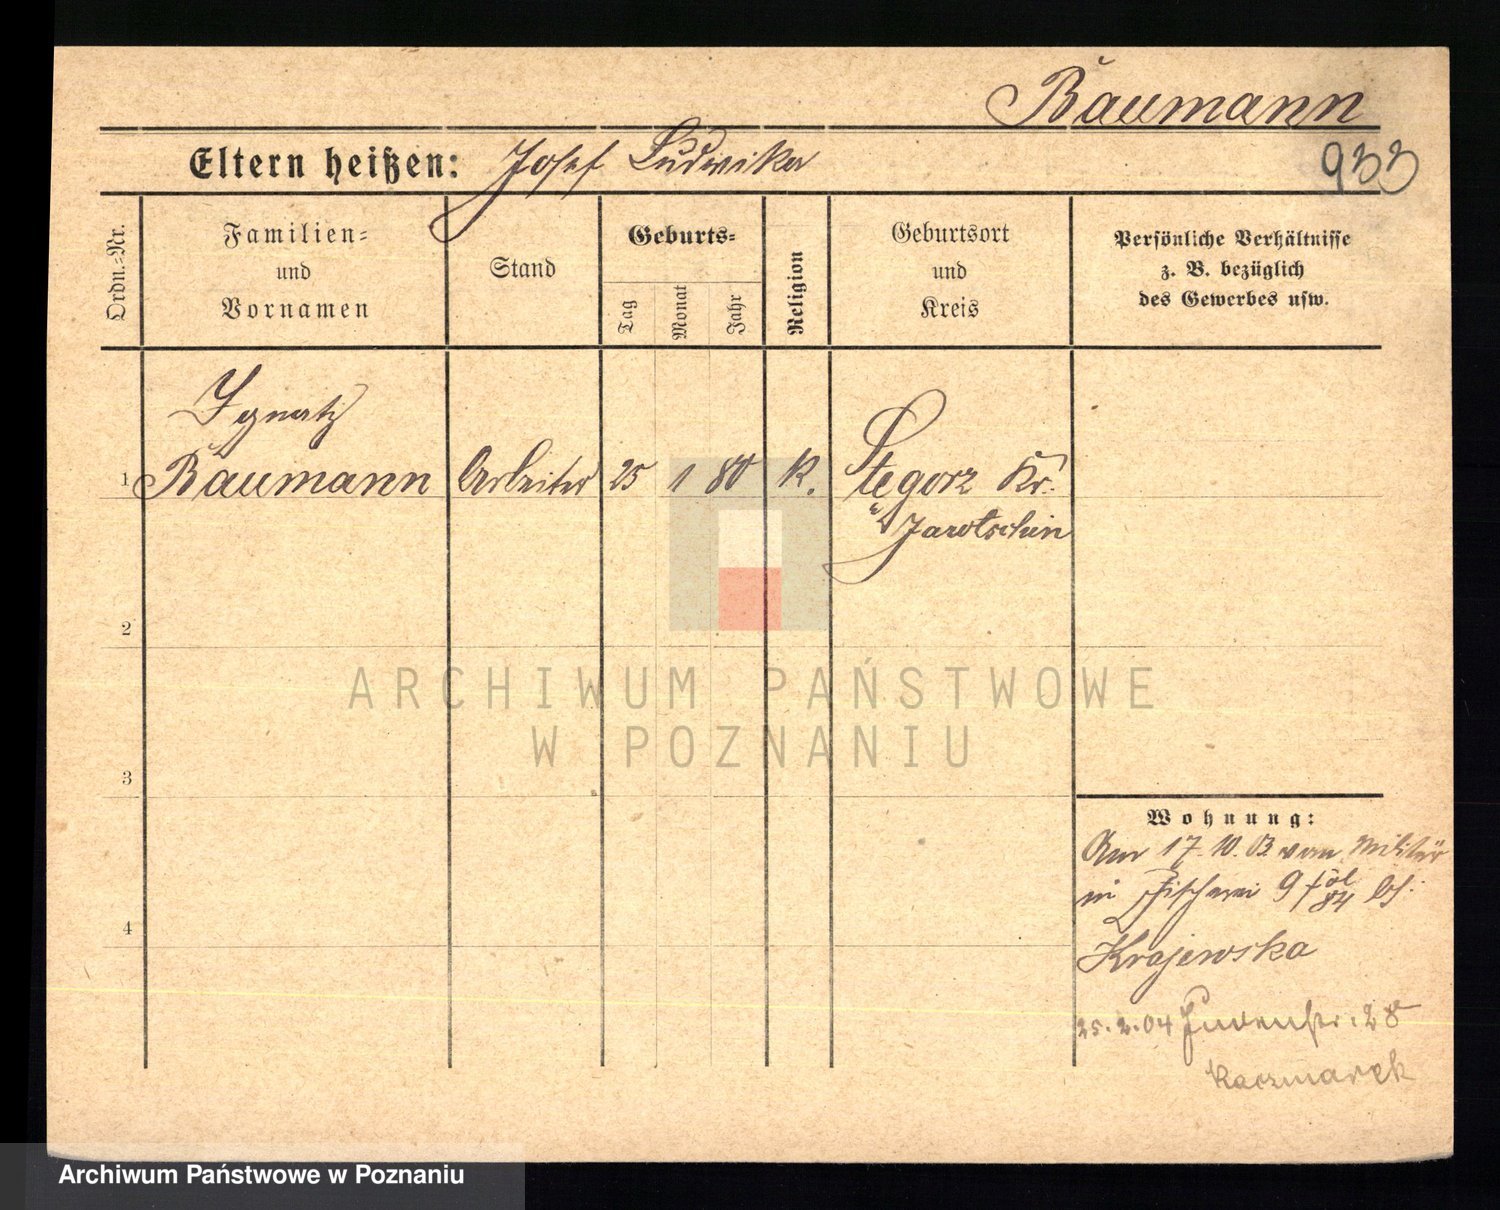 Baumann
Eltern heißen: Josef Ludwika
933
Ordn.-Nr.
Familien-
und
Vornamen
Stand
Geburts-
Tag
Monat
Jahr
Religion
Geburtsort
und
Kreis
Persönliche Verhältnisse
z. B. bezüglich
des Gewerbes usw.
Ignatz
1 Baumann Arbeiter 25 1 80 K. Stegorz Kr.
Jarotschin
2
3
4
Wohnung:
Am 17.10.03 vom Militär
in Fischerei 9 bei
Krajewska
25.2.04 Judenstr. 28
Kaczmarek
ARCHIWUM PAŃSTWOWE
W POZNANIU
Archiwum Państwowe w Poznaniu